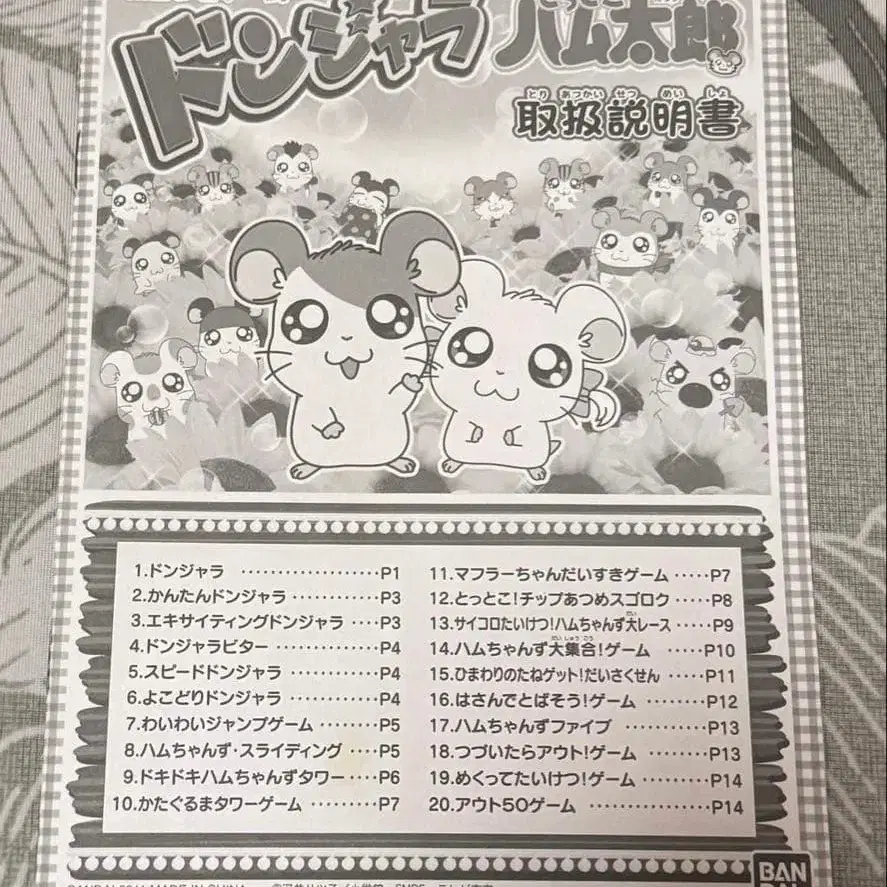 ドンジャラ
とっとこ
ハム太郎
とり あつかい せつ めい しょ
取扱説明書
1.ドンジャラ …………………P1
2.かんたんドンジャラ …………P3
3.エキサイティングドンジャラ …P3
4.ドンジャラビター ……………P4
5.スピードドンジャラ …………P4
6.よこどりドンジャラ …………P4
7.わいわいジャンプゲーム ………P5
8.ハムちゃんず・スライディング …P5
9.ドキドキハムちゃんずタワー …P6
10.かたぐるまタワーゲーム ………P7
11.マフラーちゃんだいすきゲーム ……P7
12.とっとこ!チップあつめスゴロク ……P8
だい
13.サイコロたいけつ!ハムちゃんず大レース ……P9
だいしゅうごう
14.ハムちゃんず大集合!ゲーム ………P10
15.ひまわりのたねゲット!だいさくせん ……P11
16.はさんでとばそう!ゲーム …………P12
17.ハムちゃんずファイブ ……………P13
18.つづいたらアウト!ゲーム …………P13
19.めくってたいけつ!ゲーム …………P14
20.アウト50ゲーム …………………P14
BAN